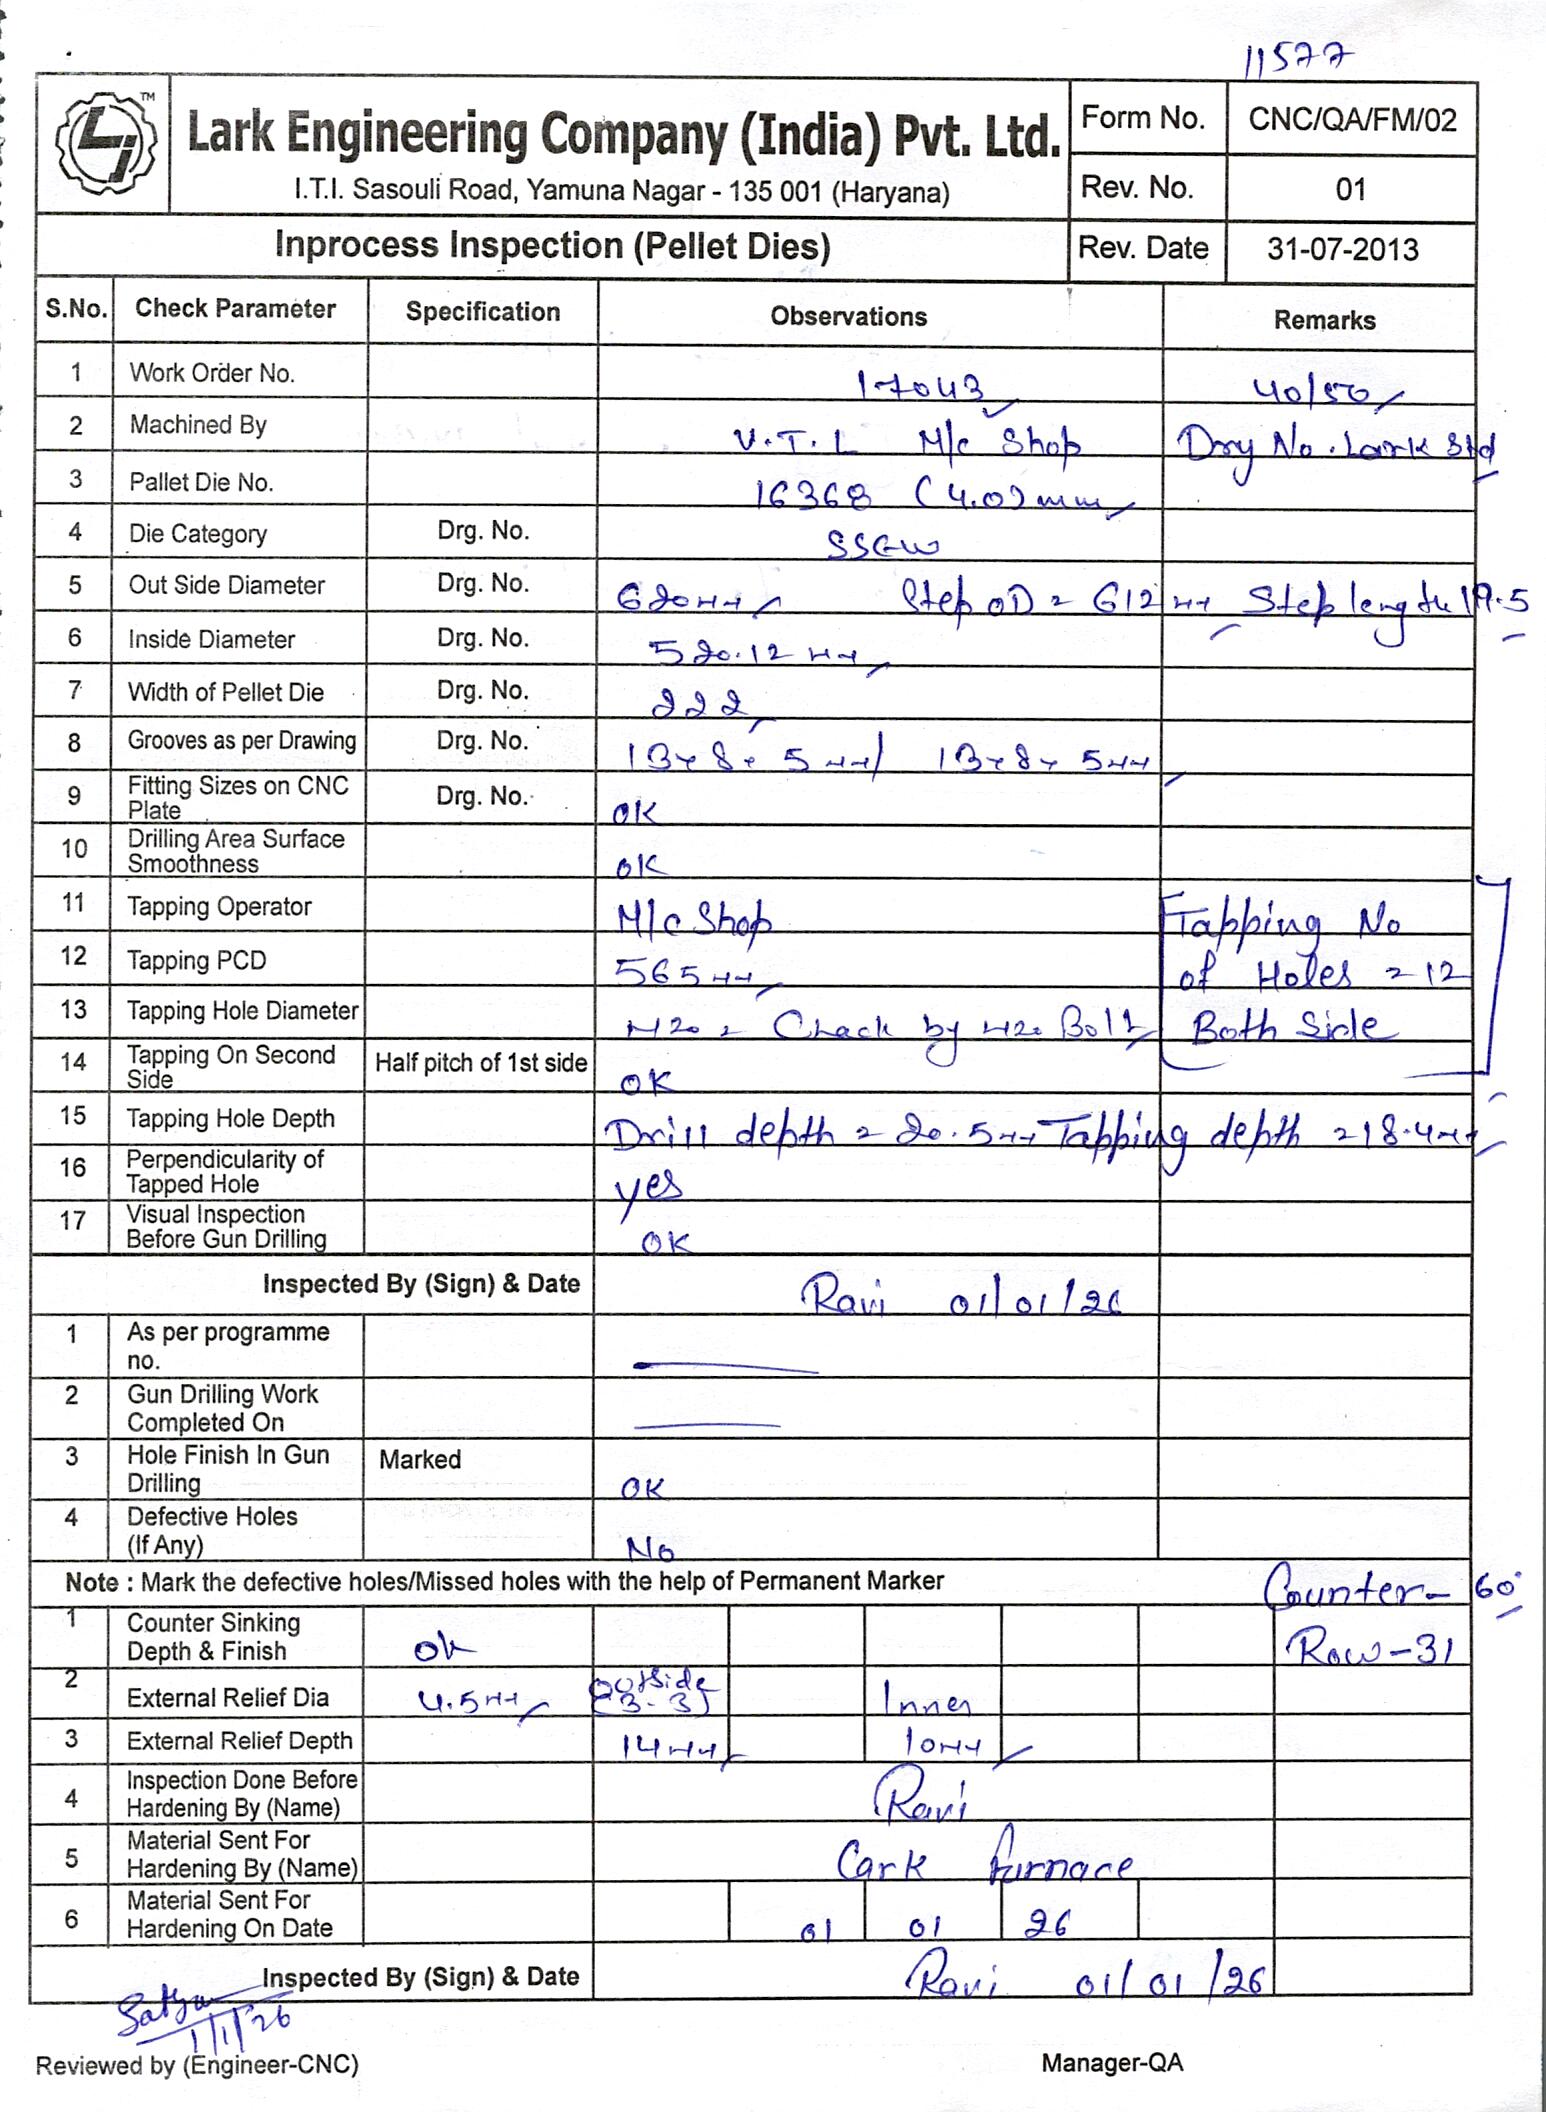 11577
TM
Lark Engineering Company (India) Pvt. Ltd.
I.T.I. Sasouli Road, Yamuna Nagar - 135 001 (Haryana)
Form No. CNC/QA/FM/02
Rev. No. 01
Inprocess Inspection (Pellet Dies) Rev. Date 31-07-2013
S.No. Check Parameter Specification Observations Remarks
1 Work Order No. 17043 40/50
2 Machined By V.T.L M/c Shop Drg No. Lark Std
3 Pallet Die No. 16368 (4.0) mm
4 Die Category Drg. No. SSGW
5 Out Side Diameter Drg. No. 620mm Step OD = 612 mm Step length 19.5
6 Inside Diameter Drg. No. 520.12 mm
7 Width of Pellet Die Drg. No. 222
8 Grooves as per Drawing Drg. No. 13x8x5mm/ 13x8x5mm
9 Fitting Sizes on CNC Plate Drg. No. OK
10 Drilling Area Surface Smoothness OK
11 Tapping Operator M/c Shop Tapping No
12 Tapping PCD 565mm of Holes = 12
13 Tapping Hole Diameter M20 = Chack by M20 Bolt Both Side
14 Tapping On Second Side Half pitch of 1st side OK
15 Tapping Hole Depth Drill depth = 20.5mm Tapping depth = 18.4mm
16 Perpendicularity of Tapped Hole yes
17 Visual Inspection Before Gun Drilling OK
Inspected By (Sign) & Date Ravi 01/01/26
1 As per programme no.
2 Gun Drilling Work Completed On
3 Hole Finish In Gun Drilling Marked OK
4 Defective Holes (If Any) No
Note : Mark the defective holes/Missed holes with the help of Permanent Marker Counter- 60°
1 Counter Sinking Depth & Finish ok Row-31
2 External Relief Dia 4.5mm Outside (3-3) Inner
3 External Relief Depth 14mm 10mm
4 Inspection Done Before Hardening By (Name) Ravi
5 Material Sent For Hardening By (Name) Lark furnace
6 Material Sent For Hardening On Date 01 01 26
Inspected By (Sign) & Date Ravi 01/01/26
Satya
1/1/26
Reviewed by (Engineer-CNC) Manager-QA